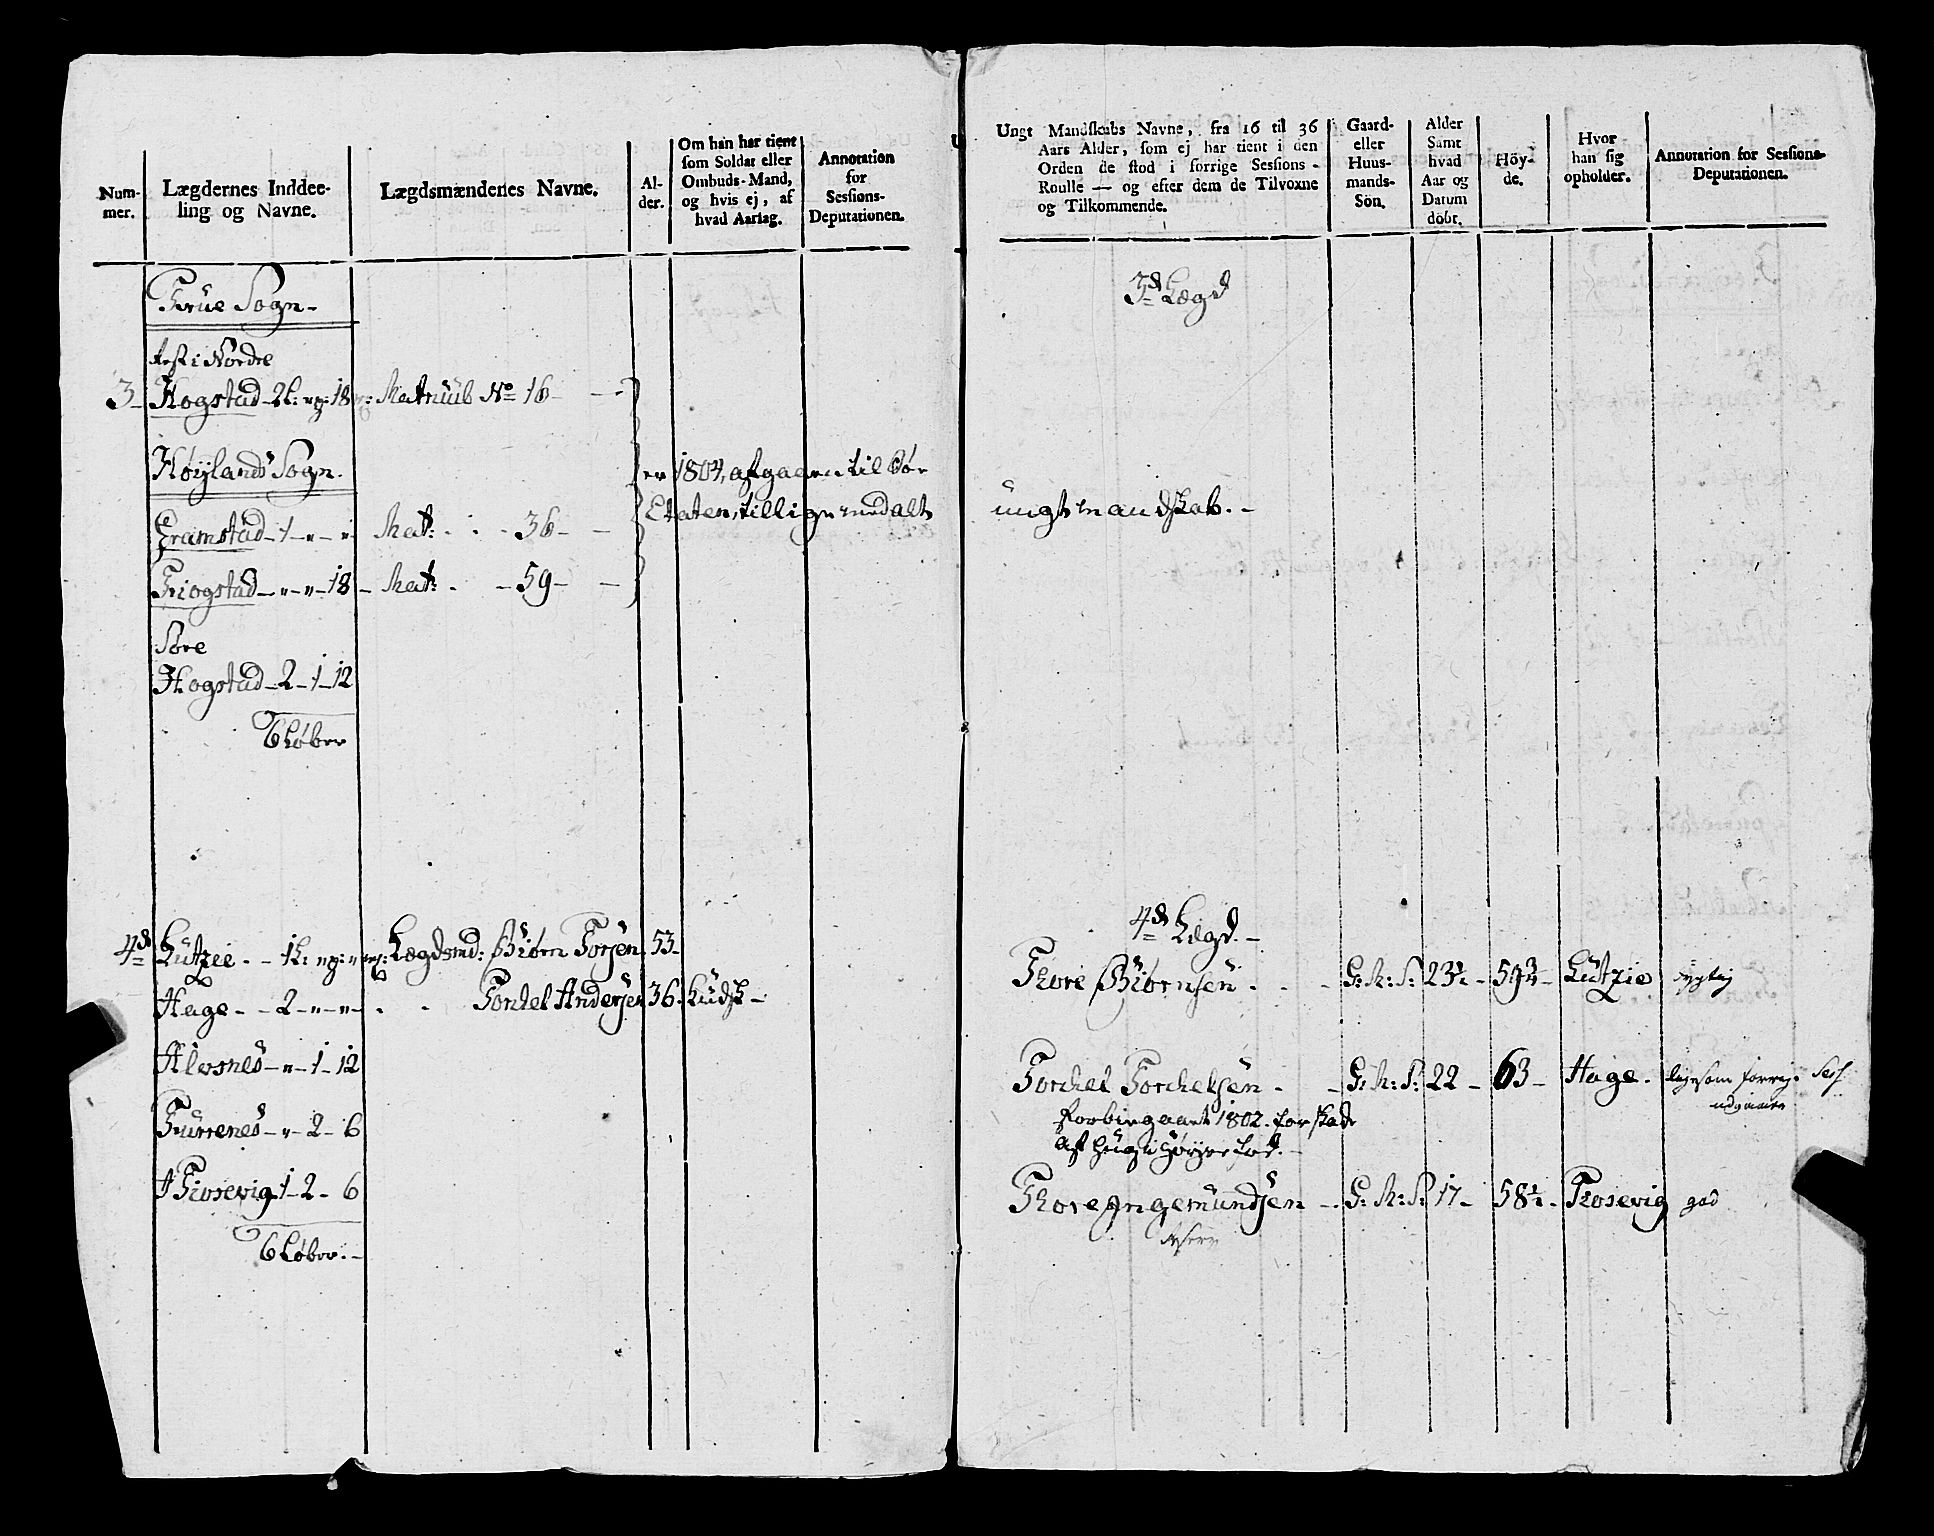 Num-
mer.
Lægdernes Inddee-
ling og Navne.
Lægdsmændenes Navne.
Al-
der.
Om han har tient
som Soldat eller
Ombuds-Mand,
og hvis ej, af
hvad Aarsag.
Annotation
for
Sessions-
Deputationen.
Sogn
3
Hogstad 18 Matriiul No 16
Høÿlands Sogn.
er 1804, afgaaen til Sør
Etaten, tillige med alt
Gramstad 1 Mat: 36
18 Mat: 59
Søre
Hogstad 2 1 12
6 Løber
4de Lutzie 1 Lægdsmd: Biørn Torsen 53
Hage 2 Torkel Andersen 36
Alvsnes 1 12
2 6
1 2 6
6 Løber.
Ungt Mandskabs Navne, fra 16 til 36
Aars Alder, som ej har tient i den
Orden de stod i forrige Sessions-
Roulle — og efter dem de Tilvoxne
og Tilkommende.
Gaard-
eller
Huus-
mands-
Sön.
Alder
Samt
hvad
Aar og
Datum
döbt.
Höy-
de.
Hvor
han sig
opholder.
Annotation for Sessions-
Deputationen.
3de Lægd
ungt mandskab.
4de Lægd.
Thore Biørnsen G: M: S: 23½ 59¾ Lutzie dygtig
Torchel Torchelsen G: M: S: 22 63 Hage.
forbigaaet 1802. for skade
af hug i høyre fod.
Thore Ingemundsen G: M: S: 17 58½ god